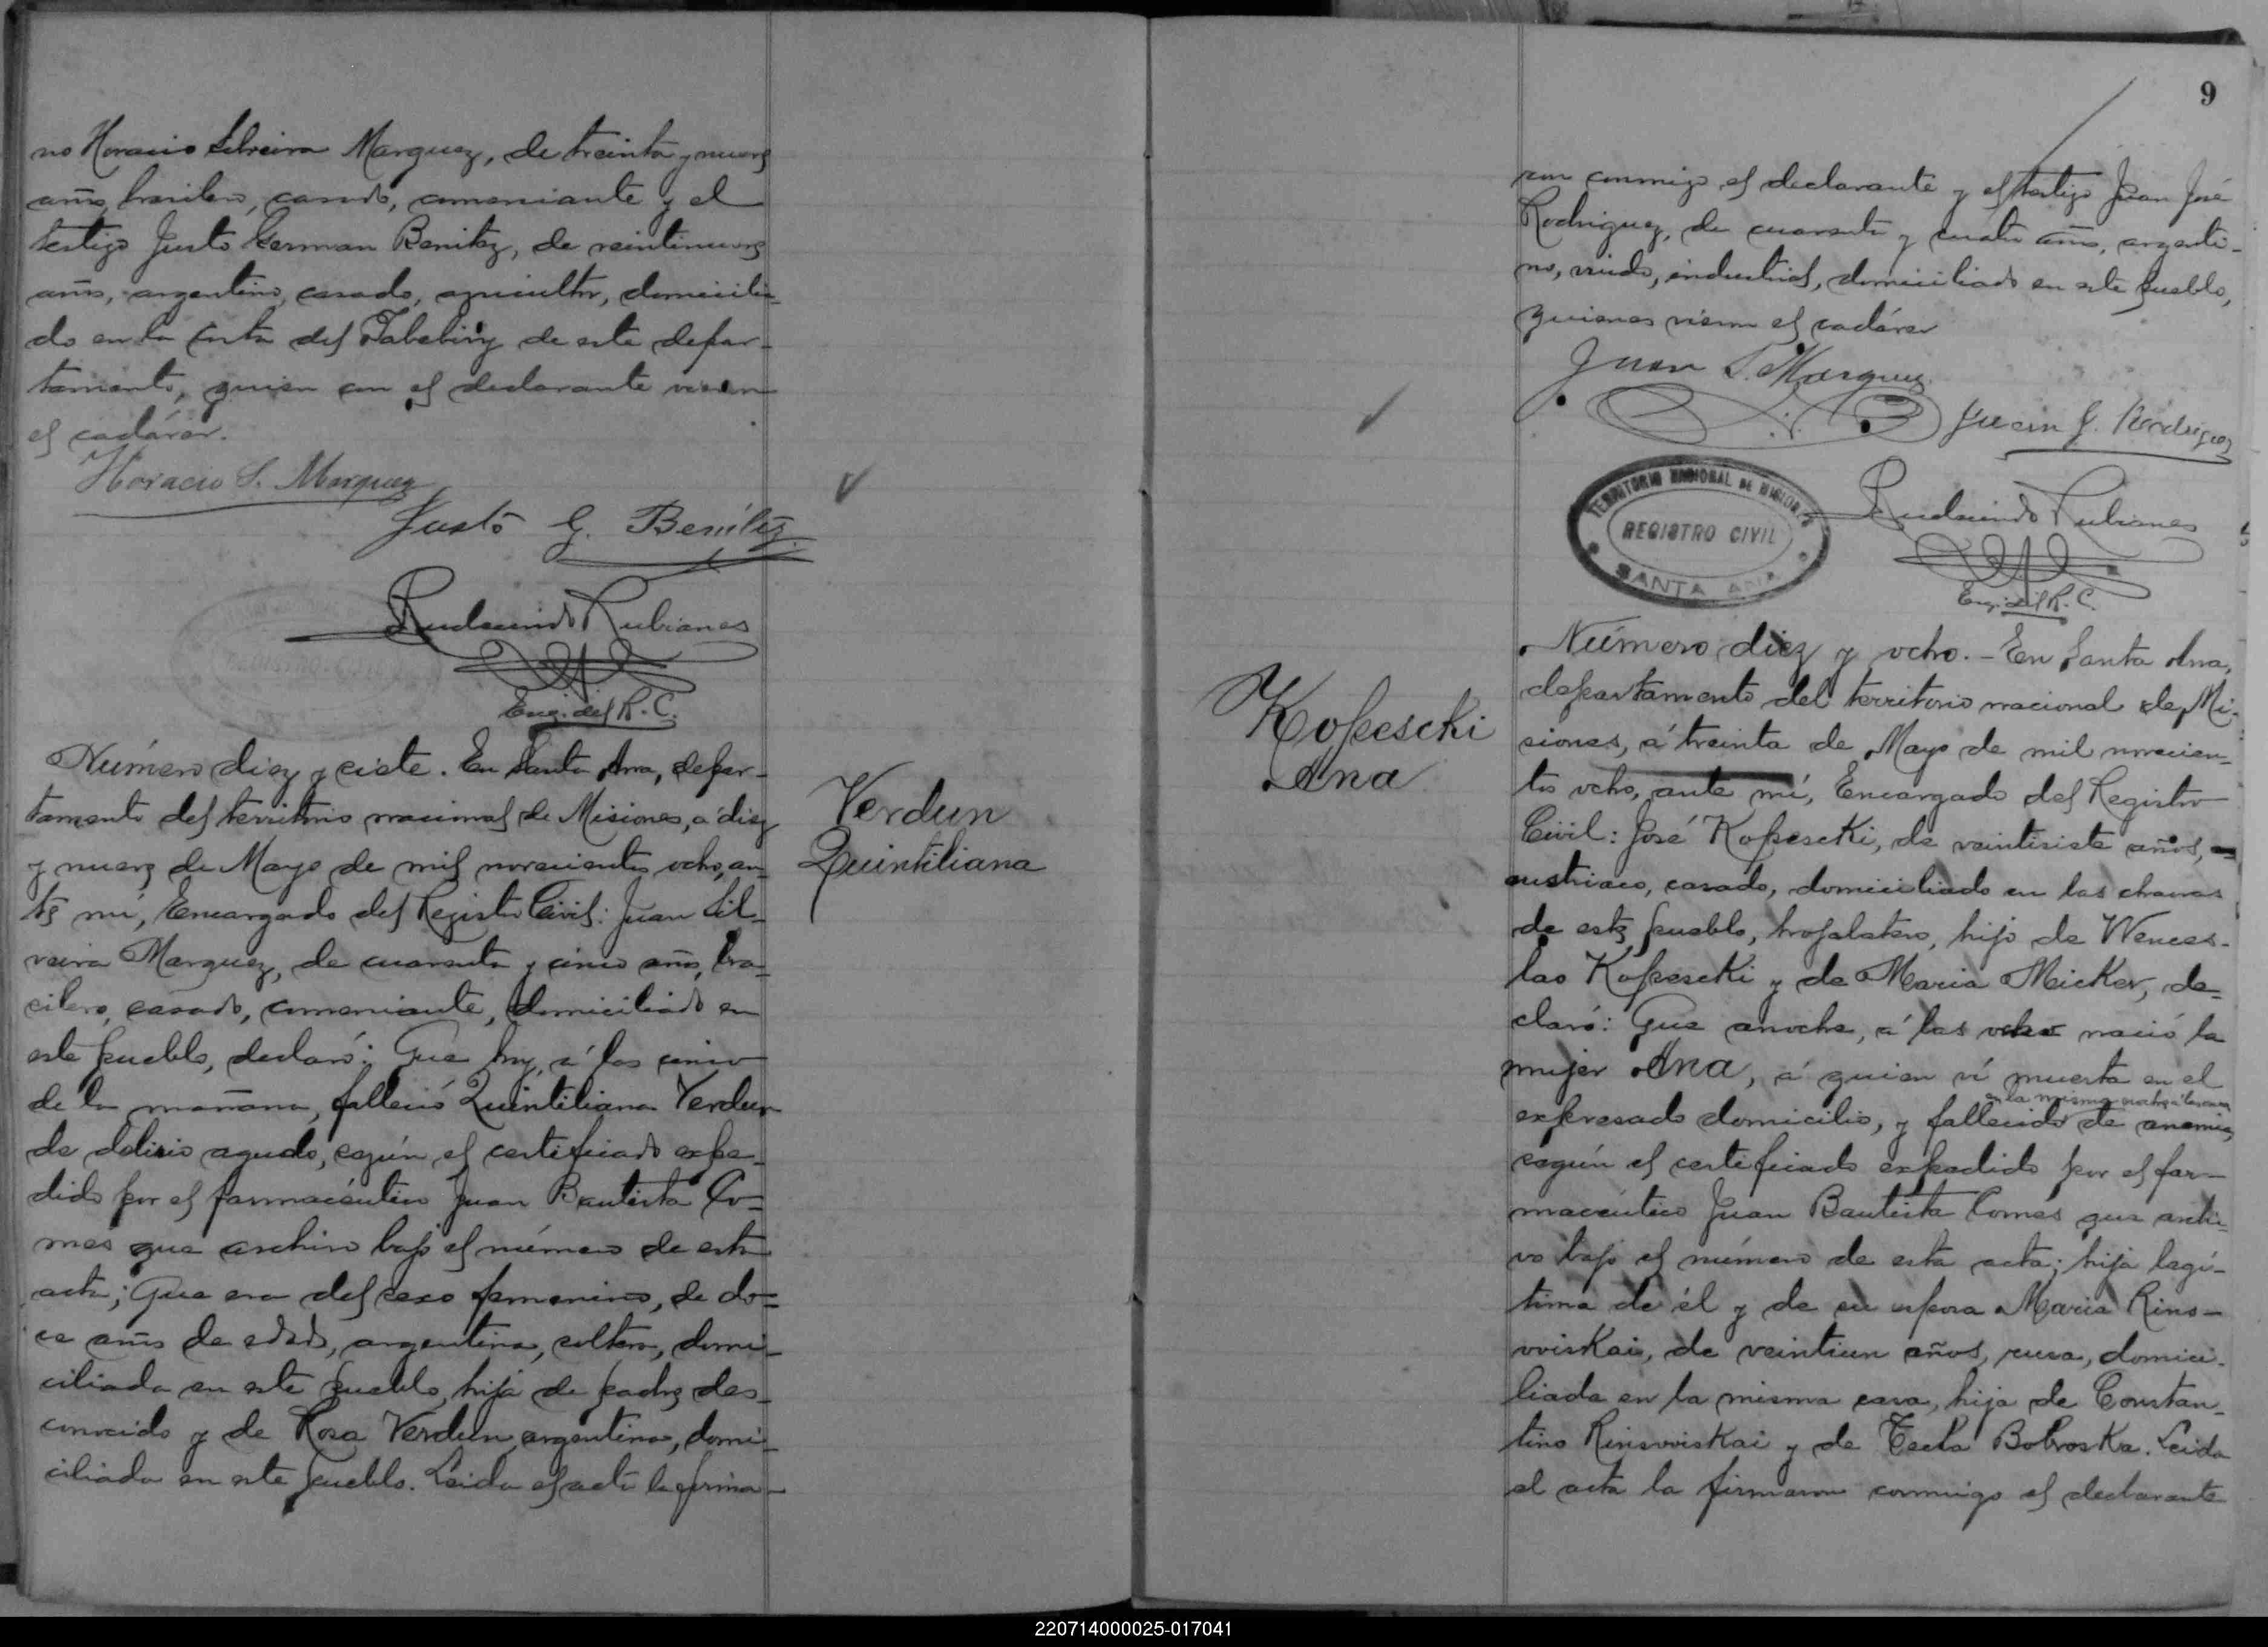 no Horacio Silveira Marquez, de treinta y nueve
años, brasilero, casado, comerciante y el
testigo Justo German Benitez, de veintinueve
años, argentino, casado, agricultor, domicilia-
do en la costa del Yabebiry de este depar-
tamento, quien con el declarante vieron
el cadáver.
Horacio S. Marquez
Justo G. Benítez.
Rudecindo Rubianes
Enc. del R. C.
Número diez y siete. En Santa Ana, depar-
tamento del territorio nacional de Misiones, a diez
y nueve de Mayo de mil novecientos ocho, an-
te mí, Encargado del Registro Civil: Juan Sil-
veira Marquez, de cuarenta y cinco años, bra-
silero, casado, comerciante, domiciliado en
este pueblo, declaró: Que hoy, á las cinco
de la mañana, falleció Quintiliana Verdun
de delirio agudo, según el certificado expe-
dido por el farmacéutico Juan Bautista Co-
mes que archivo bajo el número de esta
acta; Que era del sexo femenino, de do-
ce años de edad, argentina, soltera, domi-
ciliada en este pueblo, hija de padre des-
conocido y de Rosa Verdun, argentina, domi-
ciliada en este pueblo. Leida el acta la firma-
Verdun
Quintiliana
9
ron conmigo el declarante y el testigo Juan José
Rodriguez, de cuarenta y cuatro años, argenti-
no, viudo, industrial, domiciliado en este pueblo,
quienes vieron el cadáver
Juan S. Marquez
Juan J. Rodriguez
TERRITORIO NACIONAL DE MISIONES
REGISTRO CIVIL
SANTA ANA
Rudecindo Rubianes
Enc. del R. C.
Kopescki
Ana
Número diez y ocho. - En Santa Ana,
departamento del territorio nacional de Mi-
siones, á treinta de Mayo de mil novecien-
tos ocho, ante mí, Encargado del Registro
Civil: José Kopescki, de veintisiete años,
austriaco, casado, domiciliado en las chacras
de este pueblo, hojalatero, hijo de Wences-
lao Kopescki y de Maria Micker, de-
claró: Que anoche, á las ocho nació la
mujer Ana, á quien ví muerta en el
en la misma noche á las once
expresado domicilio, y fallecido de anemia,
según el certificado expedido por el far-
macéutico Juan Bautista Comes que archi-
vo bajo el número de esta acta; hija legí-
tima de él y de su esposa Maria Rins-
voiskai, de veintiun años, rusa, domici-
liada en la misma casa, hija de Constan-
tino Rinsvoiskai y de Tecla Bobroska. Leida
el acta la firmaron conmigo el declarante
220714000025-017041